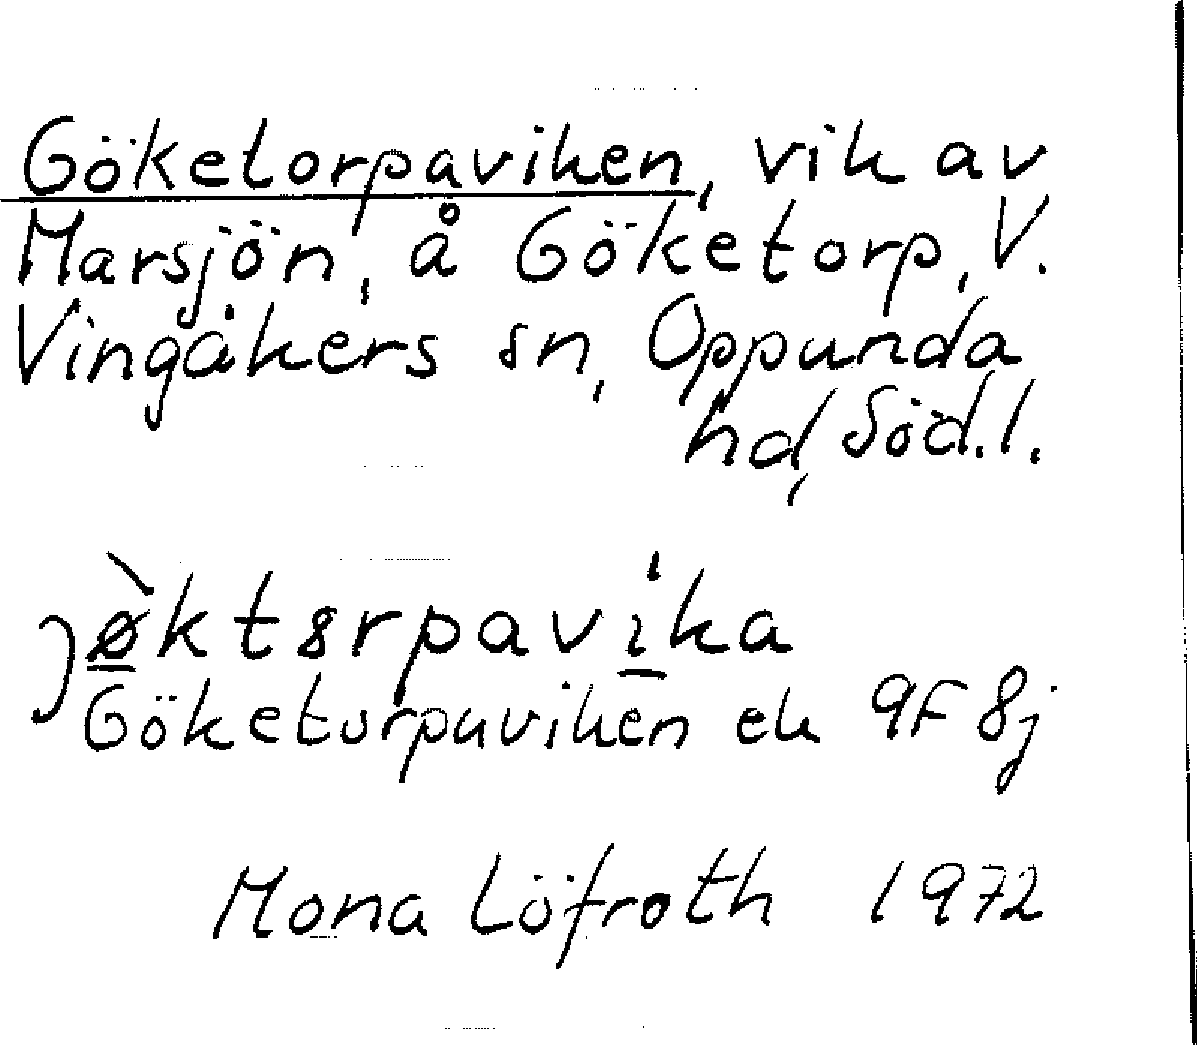 Göketorpaviken, vik av
Marsjön, å Göketorp, V.
Vingåkers sn, Oppunda
hd, Söd.l.
jø̲̀ktɞrpavi̲̍ka
Göketorpaviken ek 9F 8j
Mona Löfroth 1972